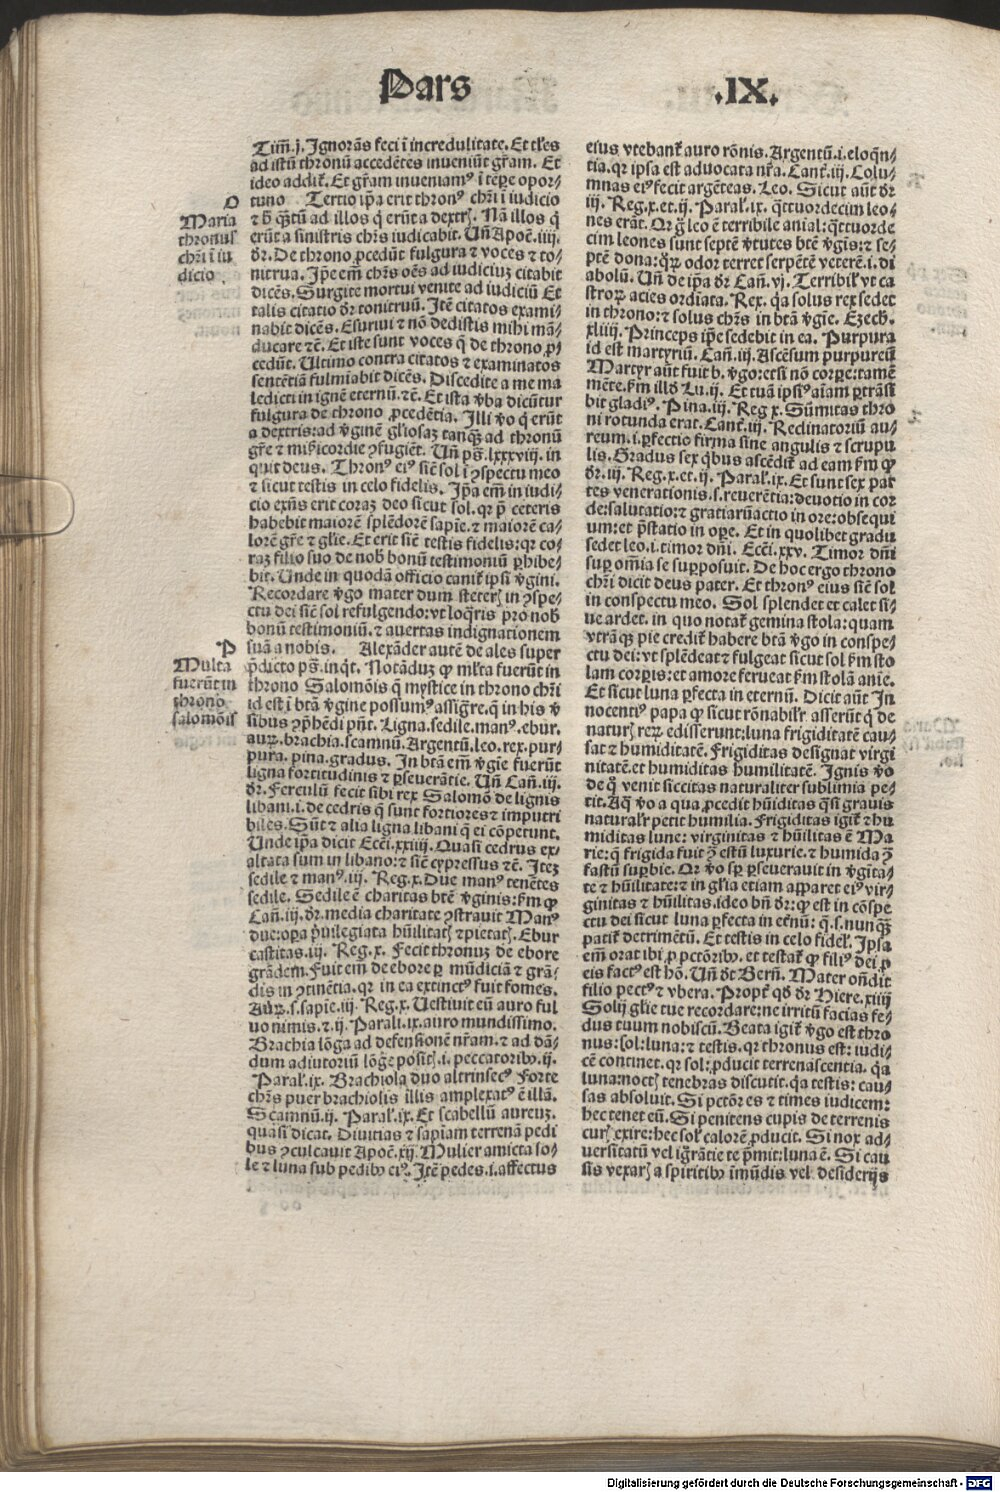 Pars .IX.
Tim̄.j. Ignorãs feci ĩ incredulitate. Et tles
ad istũ thronũ accedẽtes inveniũt grãm. Et
ideo addit̃. Et grãm inveniamꝰ ĩ tẽpe opor-
tuno Tertio ip̃a erit thronꝰ chrĩ ĩ iudicio
O
Maria
thronus
chrĩ ĩ iu
dicio
⁊ ꝙ̃tũ ad illos q̃ erũt a dextrꝭ. Nã illos q̃
erũt a sinistris chrs iudicabit. Uñ Apoc̃.iiij.
dr̃. De throno ꝓcedũt fulgura ⁊ voces ⁊ to-
nitrua. Ip̃e em̃ chrs oẽs ad iudiciuꝫ citabit
dicẽs. Surgite mortui venite ad iudiciũ Et
talis citatio dr̃ tonitruũ. Itẽ citatos exami-
nabit dicẽs. Esurivi ⁊ nõ dedistis mihi mã-
ducare ⁊c̃. Et iste sunt voces q̃ de throno ꝓ-
cedũt. Ultimo contra citatos ⁊ examinatos
sentẽtiã fulmĩabit dicẽs. Discedite a me ma
ledicti in ignẽ eternũ.⁊c̃. Et ista v̾ba dicũtur
fulgura de throno ꝓcedẽtia. Illi v̾o q̃ erũt
a dextris: ad v̾ginẽ gl̃iosaꝫ tanꝙ̃ ad thronũ
gr̃e ⁊ mĩcordie ꝯfugiẽt. Uñ ps̃.lxxxviij. in
quit deus. Thronꝰ eiꝰ sic̃ sol ĩ ꝯspectu meo
⁊ sicut testis in celo fidelis. Ip̃a em̃ in iudi-
cio exñs erit coraꝫ deo sicut sol. qꝛ p̃ ceteris
habebit maiorẽ splẽdorẽ sapie. ⁊ maiorẽ ca-
lorẽ gr̃e ⁊ gl̃ie. Et erit sic̃ testis fidelis: qꝛ co-
raꝫ filio suo de nob̃ bonũ testimoniũ ꝑhibe-
bit. Unde in quodã officio canit̃ ipsi v̾gini.
Recordare v̾go mater dum steterꝭ in ꝯspe-
ctu dei sic̃ sol refulgendo: vt loq̃ris pro nob̃
bonũ testimoniũ. ⁊ avertas indignationem
suã a nobis. Alexãder autẽ de ales super
P
Multa
fuerũt in
throno
salomõis
p̃dicto ps̃. inq̃t. Notãduꝫ ꝙ ml̃ta fuerũt in
throno Salomõis q̃ mystice in throno chrĩ
id est ĩ btã v̾gine possumꝰ assig̃re. q̃ in his v̾
sibus ꝯp̃hẽdi pñt. Ligna. sedile. manꝰ. ebur.
auꝝ. brachia. scamnũ. Argentũ. leo. rex. pur-
pura. pina. gradus. In btã em̃ v̾gie fuerũt
ligna fortitudinis ⁊ ꝑseverãtie. Uñ Can̄.iij.
dr̃. Ferculũ fecit sibi rex Salomõ de lignis
libani.i. de cedris q̃ sunt fortiores ⁊ imputri
biles. Sũt ⁊ alia ligna libani q̃ ei cõpetunt.
Unde ip̃a dicit Ecc̃i.xxiiij. Quasi cedrus ex-
altata sum in libano: ⁊ sic̃ cypressus ⁊c̃. Iteꝫ
sedile ⁊ manꝰ.iij. Reg.x. Due manꝰ tenẽtes
sedile. Sedile ẽ charitas btẽ v̾ginis: s̃m ꝙ
Can̄.iij. dr̃. media charitate ꝯstravit Manꝰ
due: oꝑa p̃uilegiata hũilitatꝭ ⁊ pietatꝭ. Ebur
castitas.iij. Reg.x. Fecit thronuꝫ de ebore
grãdem. Fuit em̃ de ebore ꝑ mũdiciã ⁊ grã-
dis in ꝯtinẽtia. qꝛ in ea extinctꝰ fuit fomes.
Auꝝ.s. sapie.iij. Reg.x. Uestivit eũ auro ful
vo nimis. ⁊.ij. Parali.ix. auro mundissimo.
Brachia lõga ad defensionẽ nr̃am. ⁊ ad dã-
dum adiutoriũ lõg̃e positꝭ.i. peccatoribꝰ.ij.
Paral̃.ix. Brachiola duo altrinsecꝰ Forte
chrs puer brachiolis illis amplexatꝰ ẽ illã.
Scamnũ.ij. Paral̃.ix. Et scabellũ aureuꝫ.
quasi dicat. Divitias ⁊ sapiam terrenã pedi
bus ꝯculcavit Apoc̃.xij. Mulier amicta so-
le ⁊ luna sub pedibꝰ eiꝰ. Itẽ pedes.i. affectus
eius vtebant̃ auro rõnis. Argentũ.i. eloq̃n-
tia. qꝛ ipsa est advocata nr̃a. Cant̃.iij. Colu-
mnas eiꝰ fecit argẽteas. Leo. Sicut aũt dr̃
iij. Reg.x. et.ij. Paral̃.ix. q̃ttuordecim leo-
nes erãt. Or g̃ leo ẽ terribile anial: q̃ttuorde
cim leones sunt septẽ v̾tutes btẽ v̾gis: ⁊ se-
ptẽ dona: q̃ꝝ odor terret serpẽtẽ veterẽ.i. di
abolũ. Uñ de ip̃a dr̃ Can̄.vj. Terribil̃ vt ca
stroꝝ acies ordiata. Rex. q̃a solus rex sedet
in throno: ⁊ solus chrs in btã v̾gie. Ezech̃.
xliiij. Princeps ip̃e sedebit in ea. Purpura
id est martyriũ. Can̄.iij. Ascẽsum purpureũ
Martyr aũt fuit b. v̾go: etsi nõ corꝑe: tamẽ
mẽte. s̃m illd̃ Lu.ij. Et tuã ipsiꝰ aĩam ꝑtrãsi
bit gladiꝰ. Pina.iij. Reg x. Sũmitas thro
ni rotunda erat. Cant̃.iij. Reclinatoriũ au-
reum.i. ꝑfectio firma sine angulis ⁊ scrupu
lis. Gradus sex q̃bus ascẽdit̃ ad eam s̃m ꝙ
dr̃.iij. Reg.x. et.ij. Paral̃.ix. Et sunt sex par
tes venerationis.s. reverẽtia: devotio in cor
de: salutatio: ⁊ gratiarũactio in ore: obsequi
um: et p̃statio in oꝑe. Et in quolibet gradu
sedet leo.i. timor dñi. Ecc̃i.xxv. Timor dñi
suꝑ om̃ia se suꝑposuit. De hoc ergo throno
chrĩ dicit deus pater. Et thronꝰ eius sic̃ sol
in conspectu meo. Sol splendet et calet si-
ve ardet. in quo notat̃ gemina stola: quam
vtrãqꝫ pie credit̃ habere btã v̾go in conspe-
ctu dei: vt splẽdeat ⁊ fulgeat sicut sol s̃m sto
lam corꝑis: et amore ferveat s̃m stolã anie.
Et sicut luna ꝑfecta in eternũ. Dicit aũt In
nocentiꝰ papa ꝙ sicut rõnabil̃r asserũt q̃ de
naturꝭ reꝝ edisserunt: luna frigiditatẽ cau-
sat ⁊ humiditatẽ. Frigiditas designat virgi
nitatẽ. et humiditas humilitatẽ. Ignis v̾o
de q̃ venit siccitas naturaliter sublimia pe-
tit. Aq̃ v̾o a qua ꝓcedit hũiditas q̃si gravis
natural̃r petit humilia. Frigiditas igit̃ ⁊ hu
miditas lune: virginitas ⁊ hũilitas ẽ Ma
rie: q̃ frigida fuit ꝯ̃ estũ luxurie. ⁊ humida ꝯ̃
fastũ suꝑbie. Or v̾o sꝑ ꝑseveravit in v̾gĩta-
te ⁊ hũilitate: ⁊ in gl̃ia etiam apparet eiꝰ vir-
ginitas ⁊ hũilitas. ideo bñ dr̃: ꝙ est in cõspe
ctu dei sicut luna ꝑfecta in et̃nũ: q̃.s. nunꝙ̃
patit̃ detrimẽtũ. Et testis in celo fidel̃. Ipsa
em̃ orat ibi ꝓ pctõribꝰ. et testat̃ ꝙ filiꝰ dei ꝓ
eis factꝰ est hõ. Uñ dt̃ Bern̄. Mater oñdit
filio pectꝰ ⁊ vbera. Propt̃ qd̃ dr̃ Hiere.xiiij
Solij gl̃ie tue recordare: ne irritũ facias fe-
dus tuum nobiscũ. Beata igit̃ v̾go est thro
nus: sol: luna: ⁊ testis. qꝛ thronus est: iudi-
cẽ continet. qꝛ sol: ꝓducit terrenascentia. q̃a
luna: noctꝭ tenebras discutit. q̃a testis: cau-
sas absoluit. Si pctõr es ⁊ times iudicem:
hec tenet eũ. Si penitens cupis de terrenis
curꝭ exire: hec sol̃ calorẽ ꝓducit. Si nox ad-
versitatũ vel igrãtie te p̃mit: luna ẽ. Si cau
sis vexarꝭ a spiritibꝰ ĩmũdis vel desiderijs
Digitalisierung gefördert durch die Deutsche Forschungsgemeinschaft - DFG